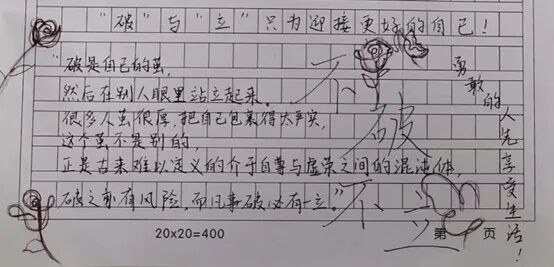 "破"与"立"只为迎接更好的自己！
"破是自己的茧，
然后在别人眼里站立起来。
很多人茧很厚，把自己包裹得太严实，
这个茧不是别的，
正是古来难以定义的介于自尊与虚荣之间的混沌体，
破之虽有风险，而凡事破必有一立。"
不破
不立
勇敢的人先享受生活！
20×20=400
第 页